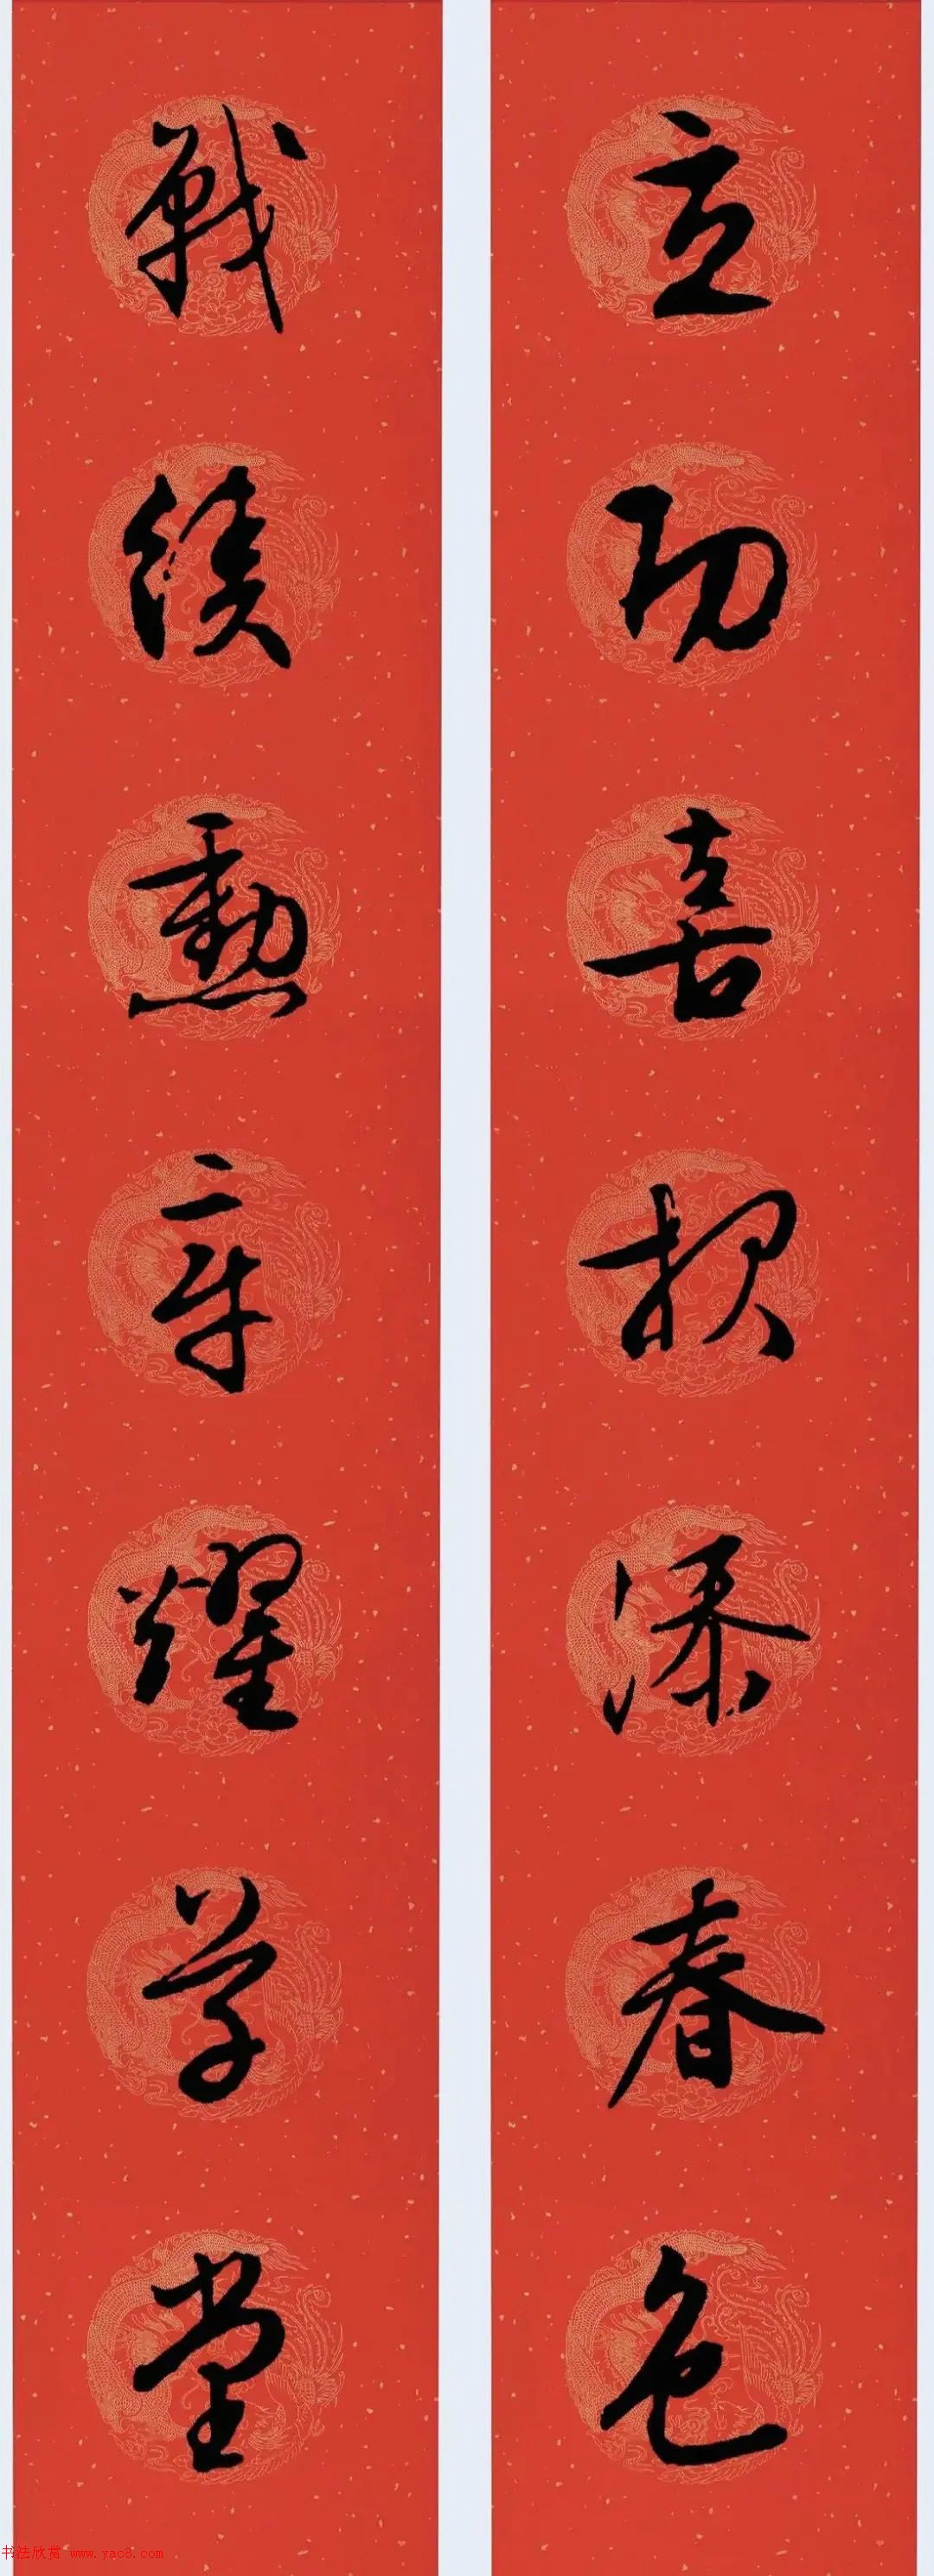 立功喜报添春色
战绩勳章耀学堂
书法欣赏 www.yac8.com